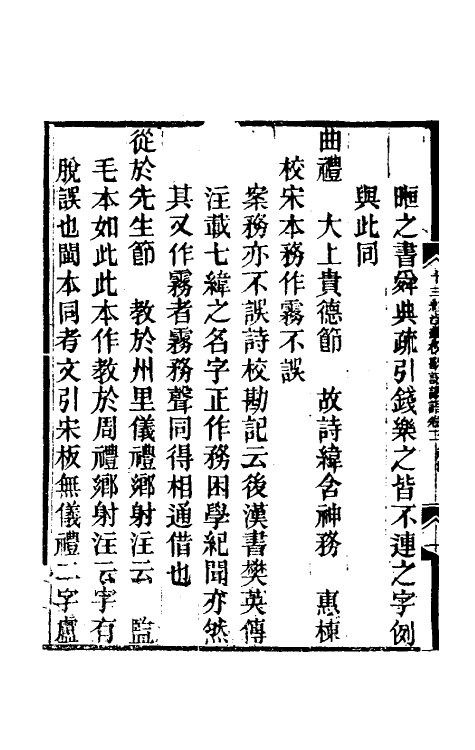 暅之書舜典疏引錢樂之皆不連之字例
與此同
曲禮　大上貴德節　故詩緯含神務　惠棟
校宋本務作霧不誤
案務亦不誤詩校勘記云後漢書樊英傳
注載七緯之名字正作務困學紀聞亦然
其又作霧者霧務聲同得相通借也
從於先生節　教於州里儀禮鄉射注云　監
毛本如此此本作教於周禮鄉射注云字有
脫誤也閩本同考文引宋板無儀禮二字盧